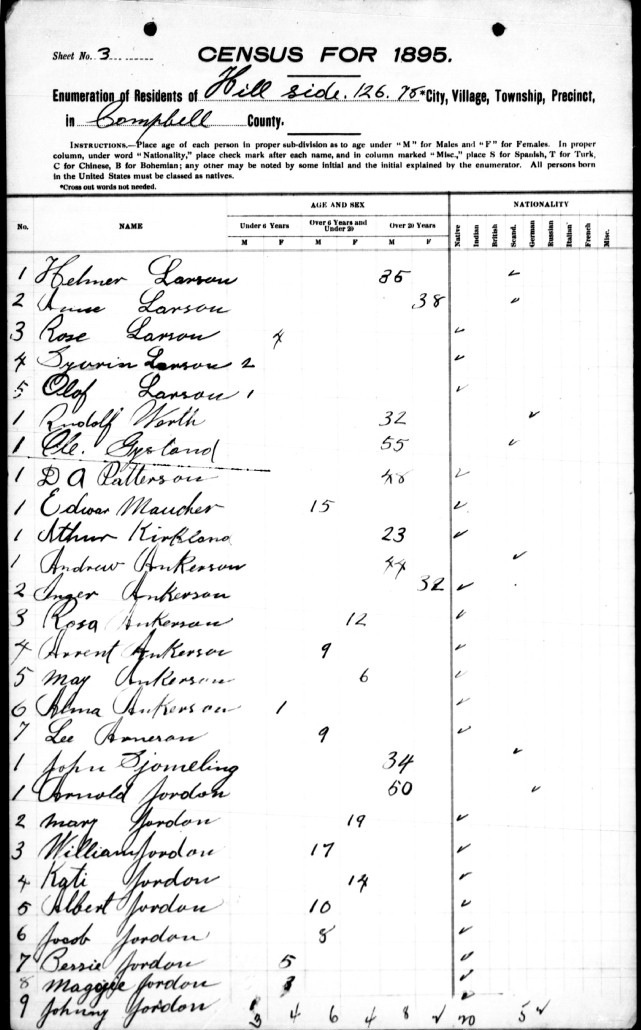 Sheet No. 3
CENSUS FOR 1895.
Enumeration of Residents of Hill side. 126. 75 *City, Village, Township, Precinct,
in Campbell County.
INSTRUCTIONS.—Place age of each person in proper sub-division as to age under "M" for Males and "F" for Females. In proper
column, under word "Nationality," place check mark after each name, and in column marked "Misc.," place S for Spanish, T for Turk,
C for Chinese, B for Bohemian; any other may be noted by some initial and the initial explained by the enumerator. All persons born
in the United States must be classed as natives.
*Cross out words not needed.
AGE AND SEX NATIONALITY
No. NAME Under 6 Years Over 6 Years and Under 20 Over 20 Years Native Indian British Scand. German Russian Italian French Misc.
M F M F M F
1 Helmer Larson 35 ✓
2 Larson 38 ✓
3 Rose Larson 4 ✓
4 Larson 2 ✓
5 Olof Larson 1 ✓
1 Rudolf Werth 32 ✓
1 Ole. Gysland 55 ✓
1 D A Patterson 48 ✓
1 Edwar Maucher 15 ✓
1 Athur Kirkland 23 ✓
1 Andrew Ankerson 44 ✓
2 Inger Ankerson 32 ✓
3 Rosa Ankerson 12 ✓
4 Arrent Ankerson 9 ✓
5 May Ankerson 6 ✓
6 Alma Ankerson 1 ✓
7 Lee Arneson 9 ✓
1 John Sjomeling 34 ✓
1 Arnold Jordon 50 ✓
2 Mary Jordon 19 ✓
3 William Jordon 17 ✓
4 Kati Jordon 14 ✓
5 Albert Jordon 10 ✓
6 Jocob Jordon 8 ✓
7 Bessie Jordon 5 ✓
8 Maggie Jordon 3 ✓
9 Johnny Jordon ✓
3 4 6 4 8 2 20 5 2